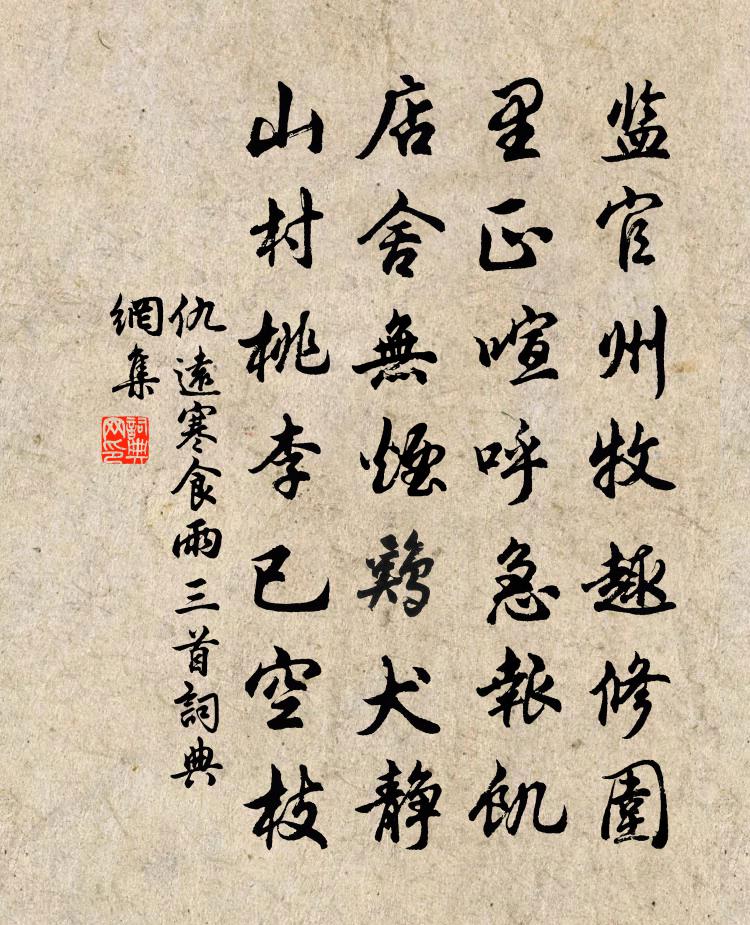 监官州牧趣修圍
里正喧呼急報飢
店舍無煙鷄犬静
山村桃李已空枝
仇遠寒食雨三首詞典
網集
詞典
网印